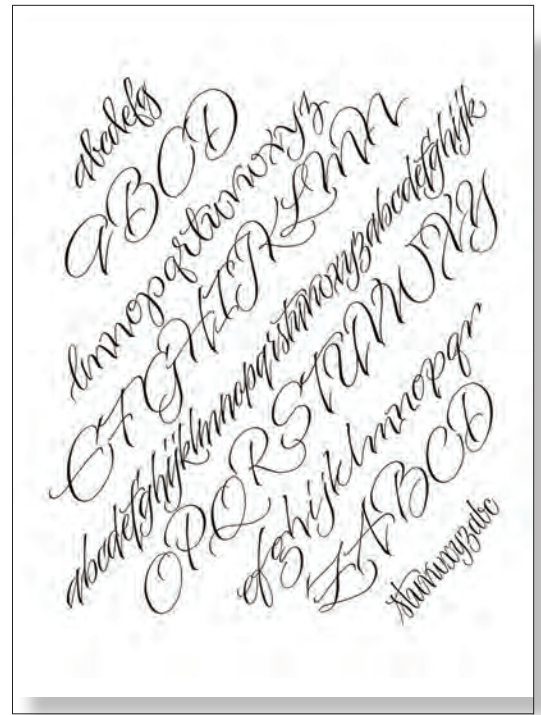 abcdefg
ABCD
lmnopqrstuvwxyz
EFGHIJKLMN
abcdefghijklmnopqrstuvwxyzabcdefghijk
OPQRSTUVWXY
efghijklmnopqr
ZABCD
stuvwxyzabc